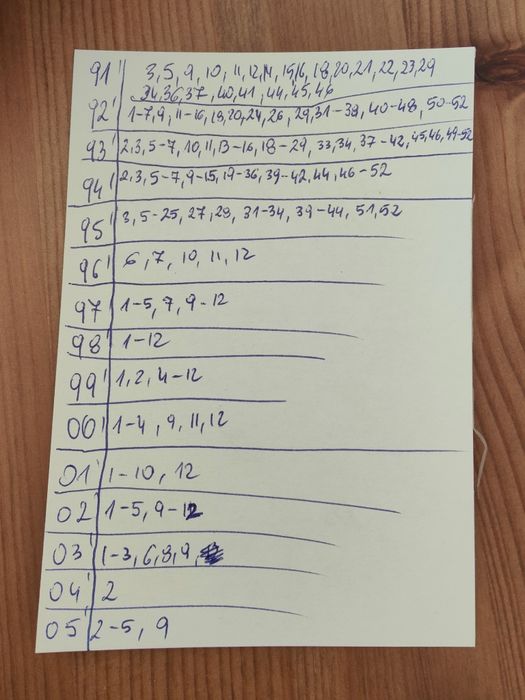 91' 3, 5, 9, 10, 11, 12, 14, 15, 16, 18, 20, 21, 22, 23, 29
34, 36, 37, 40, 41, 44, 45, 46
92' 1-7, 9, 11-16, 18, 20, 24, 26, 29, 31-38, 40-48, 50-52
93' 2, 3, 5-7, 10, 11, 13-16, 18-29, 33, 34, 37-42, 45, 46, 49-52
94' 2, 3, 5-7, 9-15, 19-36, 39-42, 44, 46-52
95' 3, 5-25, 27, 29, 31-34, 39-44, 51, 52
96' 6, 7, 10, 11, 12
97' 1-5, 7, 9-12
98' 1-12
99' 1, 2, 4-12
00' 1-4, 9, 11, 12
01' 1-10, 12
02' 1-5, 9-12
03' 1-3, 6, 8, 9,
04' 2
05' 2-5, 9